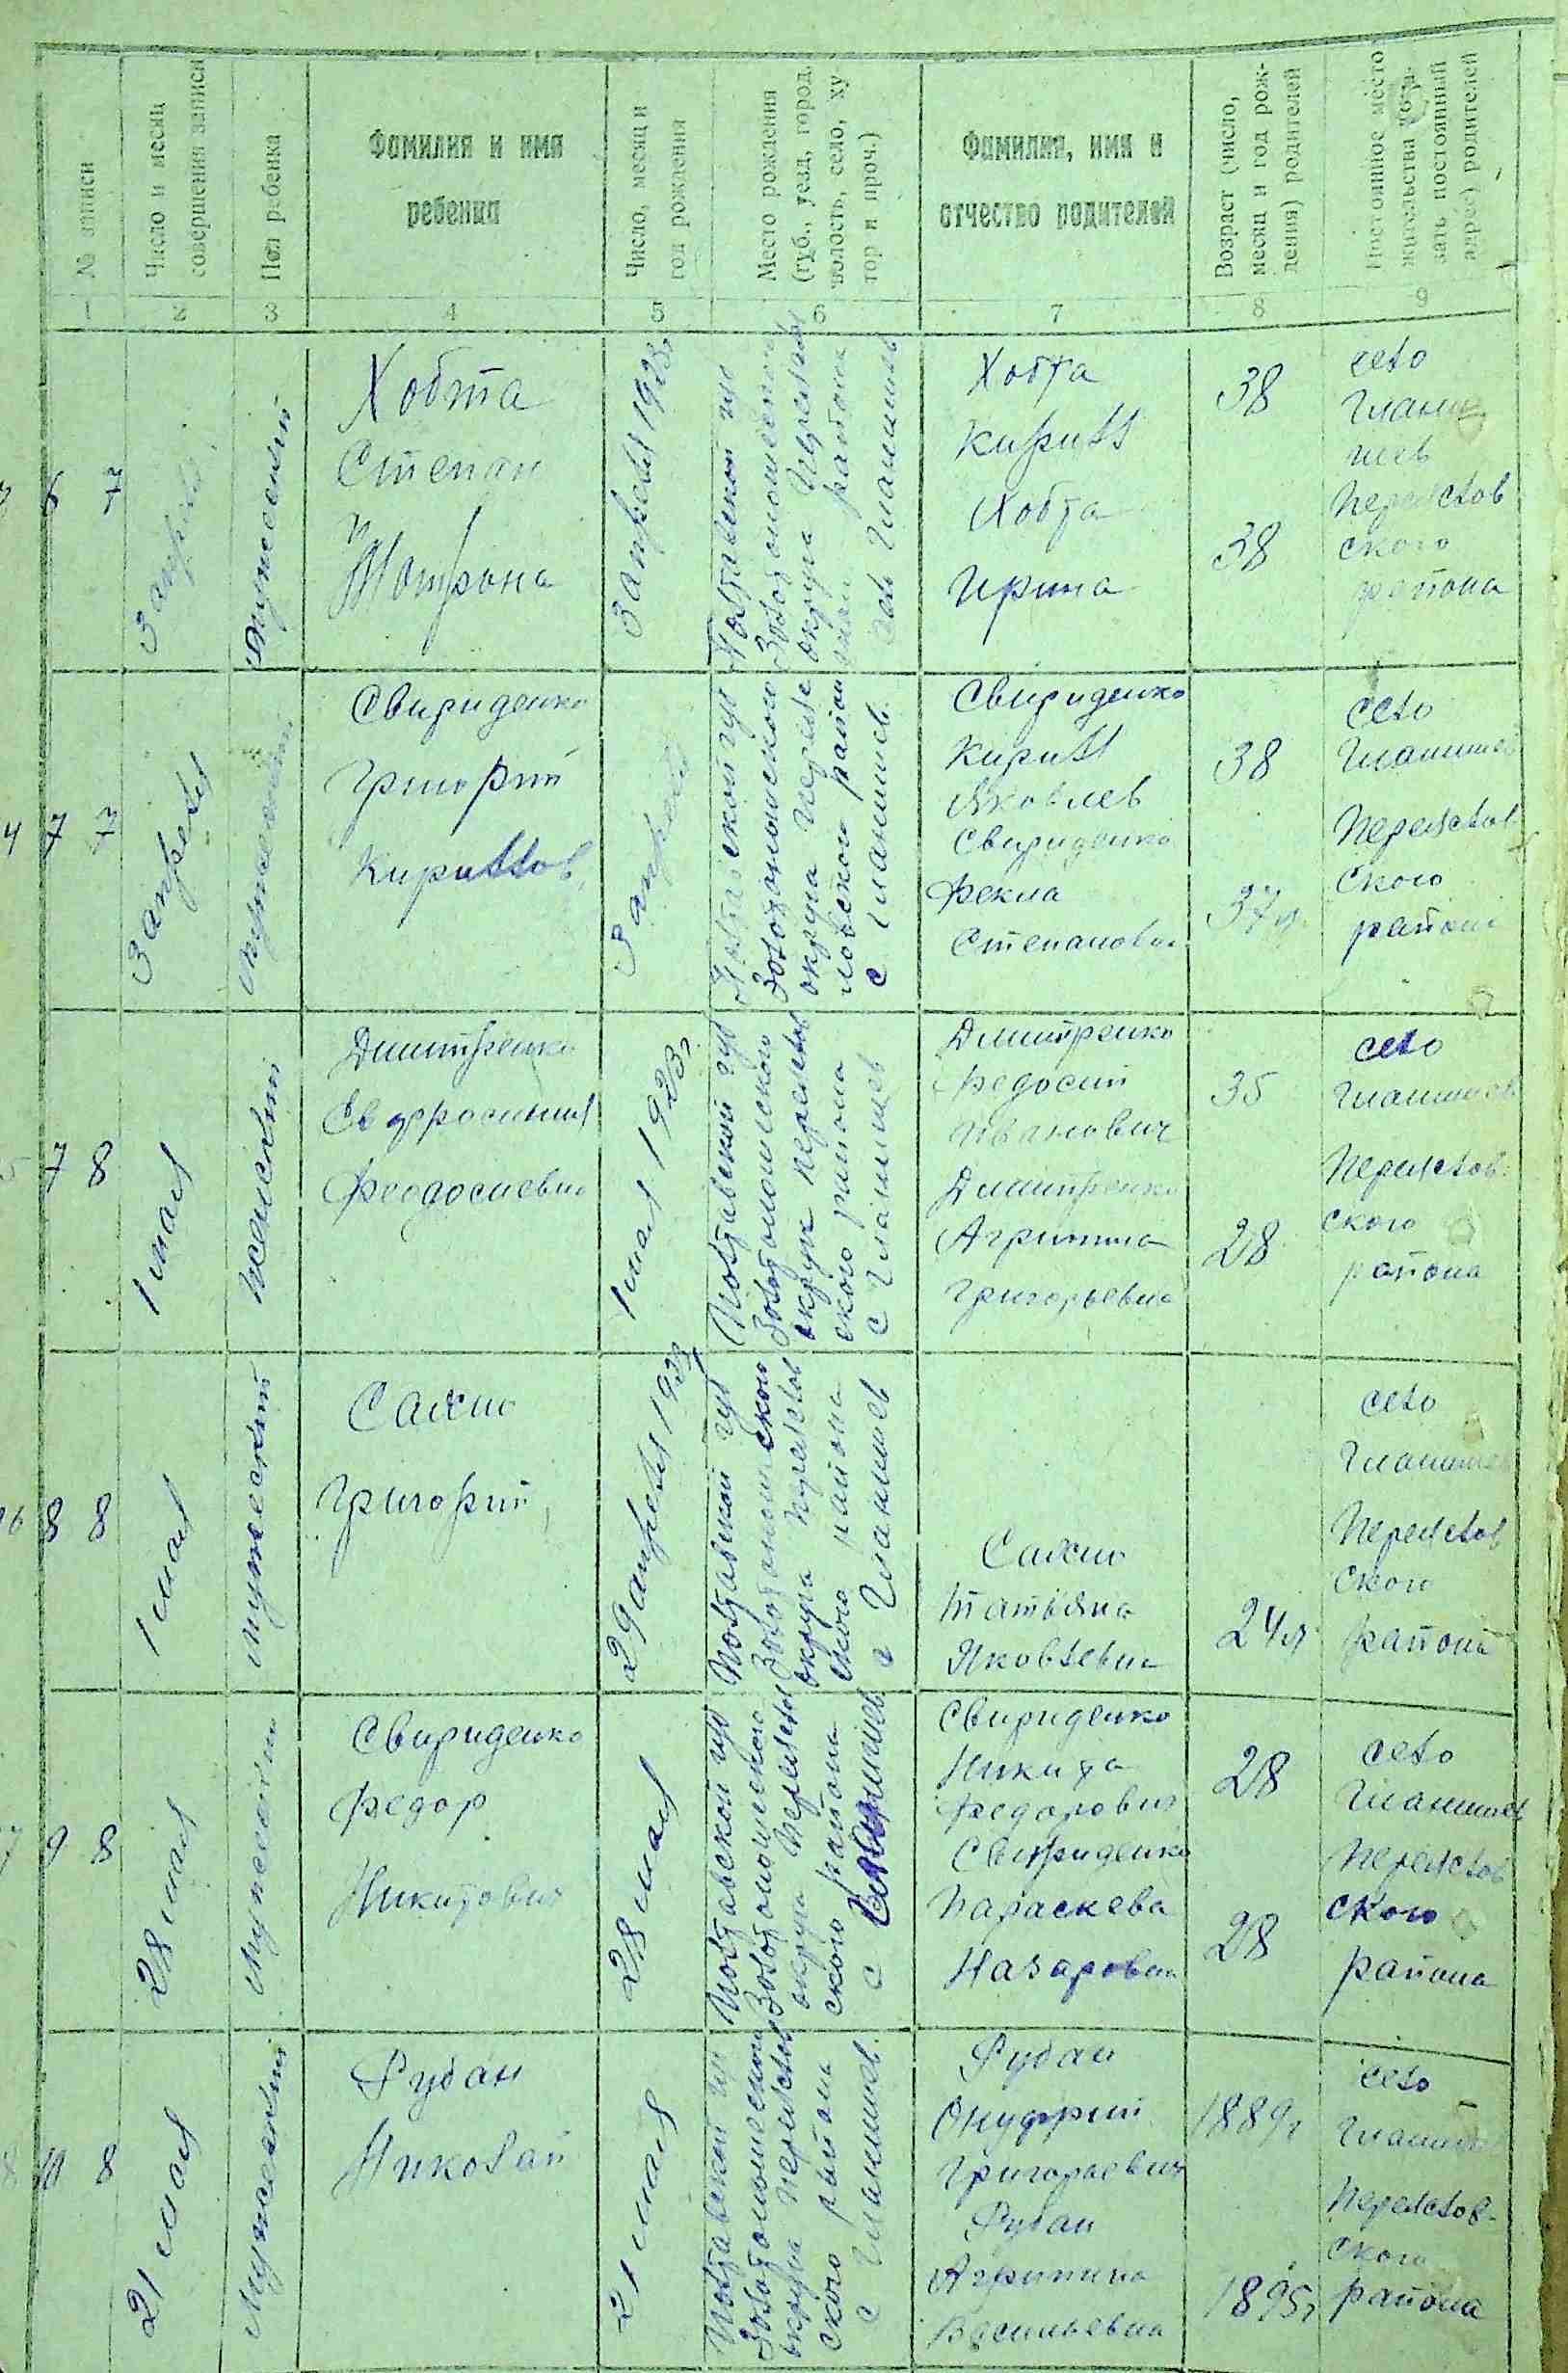 № записи
Число и месяц
совершения записи
Пол ребенка
Фамилия и имя
ребенка
Число, месяц и
год рождения
Место рождения
(губ., уезд, город,
волость, село, ху
тор и проч.)
Фамилия, имя и
отчество родителей
Возраст (число,
месяц и год рож-
дения) родителей
Постоянное место
жительства (ука-
зать постоянный
адрес) родителей
1 2 3 4 5 6 7 8 9
6 7
3 апреля
Мужеский
Хобта
Степан
и
Мотрона
3 апреля 1923 г
Полтавской губ
Золотоношского
округа Переяслов
района
село Гланишев
Хобта
Кирилл
Хобта
Ирина
38
38
село
Глани
шев
Переяслов
ского
района
7 7
3 апреля
мужеский
Свириденко
Григорий
Кириллов
3 апреля
Полтавской губ
Золотоношского
округа Переяс
ловского район
с Гланишев
Свириденко
Кирилл
Яковлев
Свириденко
Фекла
Степановна
38
37 л
село
Гланишев
Переяслов
ского
района
7 8
1 мая
женский
Дмитренко
Евфросиния
Феодосиевна
1 мая 1923 г
Полтавской губ
Золотоношского
округа Переяслов
ского района
с Гланишев
Дмитренко
Федосий
Иванович
Дмитренко
Агрипина
Григорьевна
35
28
село
Гланишев
Переяслов
ского
района
8 8
1 мая
мужеский
Сахно
Григорий
29 апреля 1923
Полтавской губ
Золотоношского
округа Переяслов
ского района
с Гланишев
Сахно
Татьяна
Яковлевна
24 л
село
Гланишев
Переяслов
ского
района
9 8
28 мая
Мужеский
Свириденко
Федор
Никитович
28 мая
Полтавской губ
Золотоношского
округа Переяслов
ского района
с Гланишев
Свириденко
Никита
Федорович
Свириденко
Параскева
Назаровна
28
28
село
Гланишев
Переяслов
ского
района
10 8
21 мая
Мужеский
Рубан
Николай
21 мая
Полтавской губ
Золотоношского
округа Переяслов
ского района
с Гланишев
Рубан
Онуфрий
Григорьевич
Рубан
Агрипина
Васильевна
1889 г
1895 г
село
Гланишев
Переяслов-
ского
района